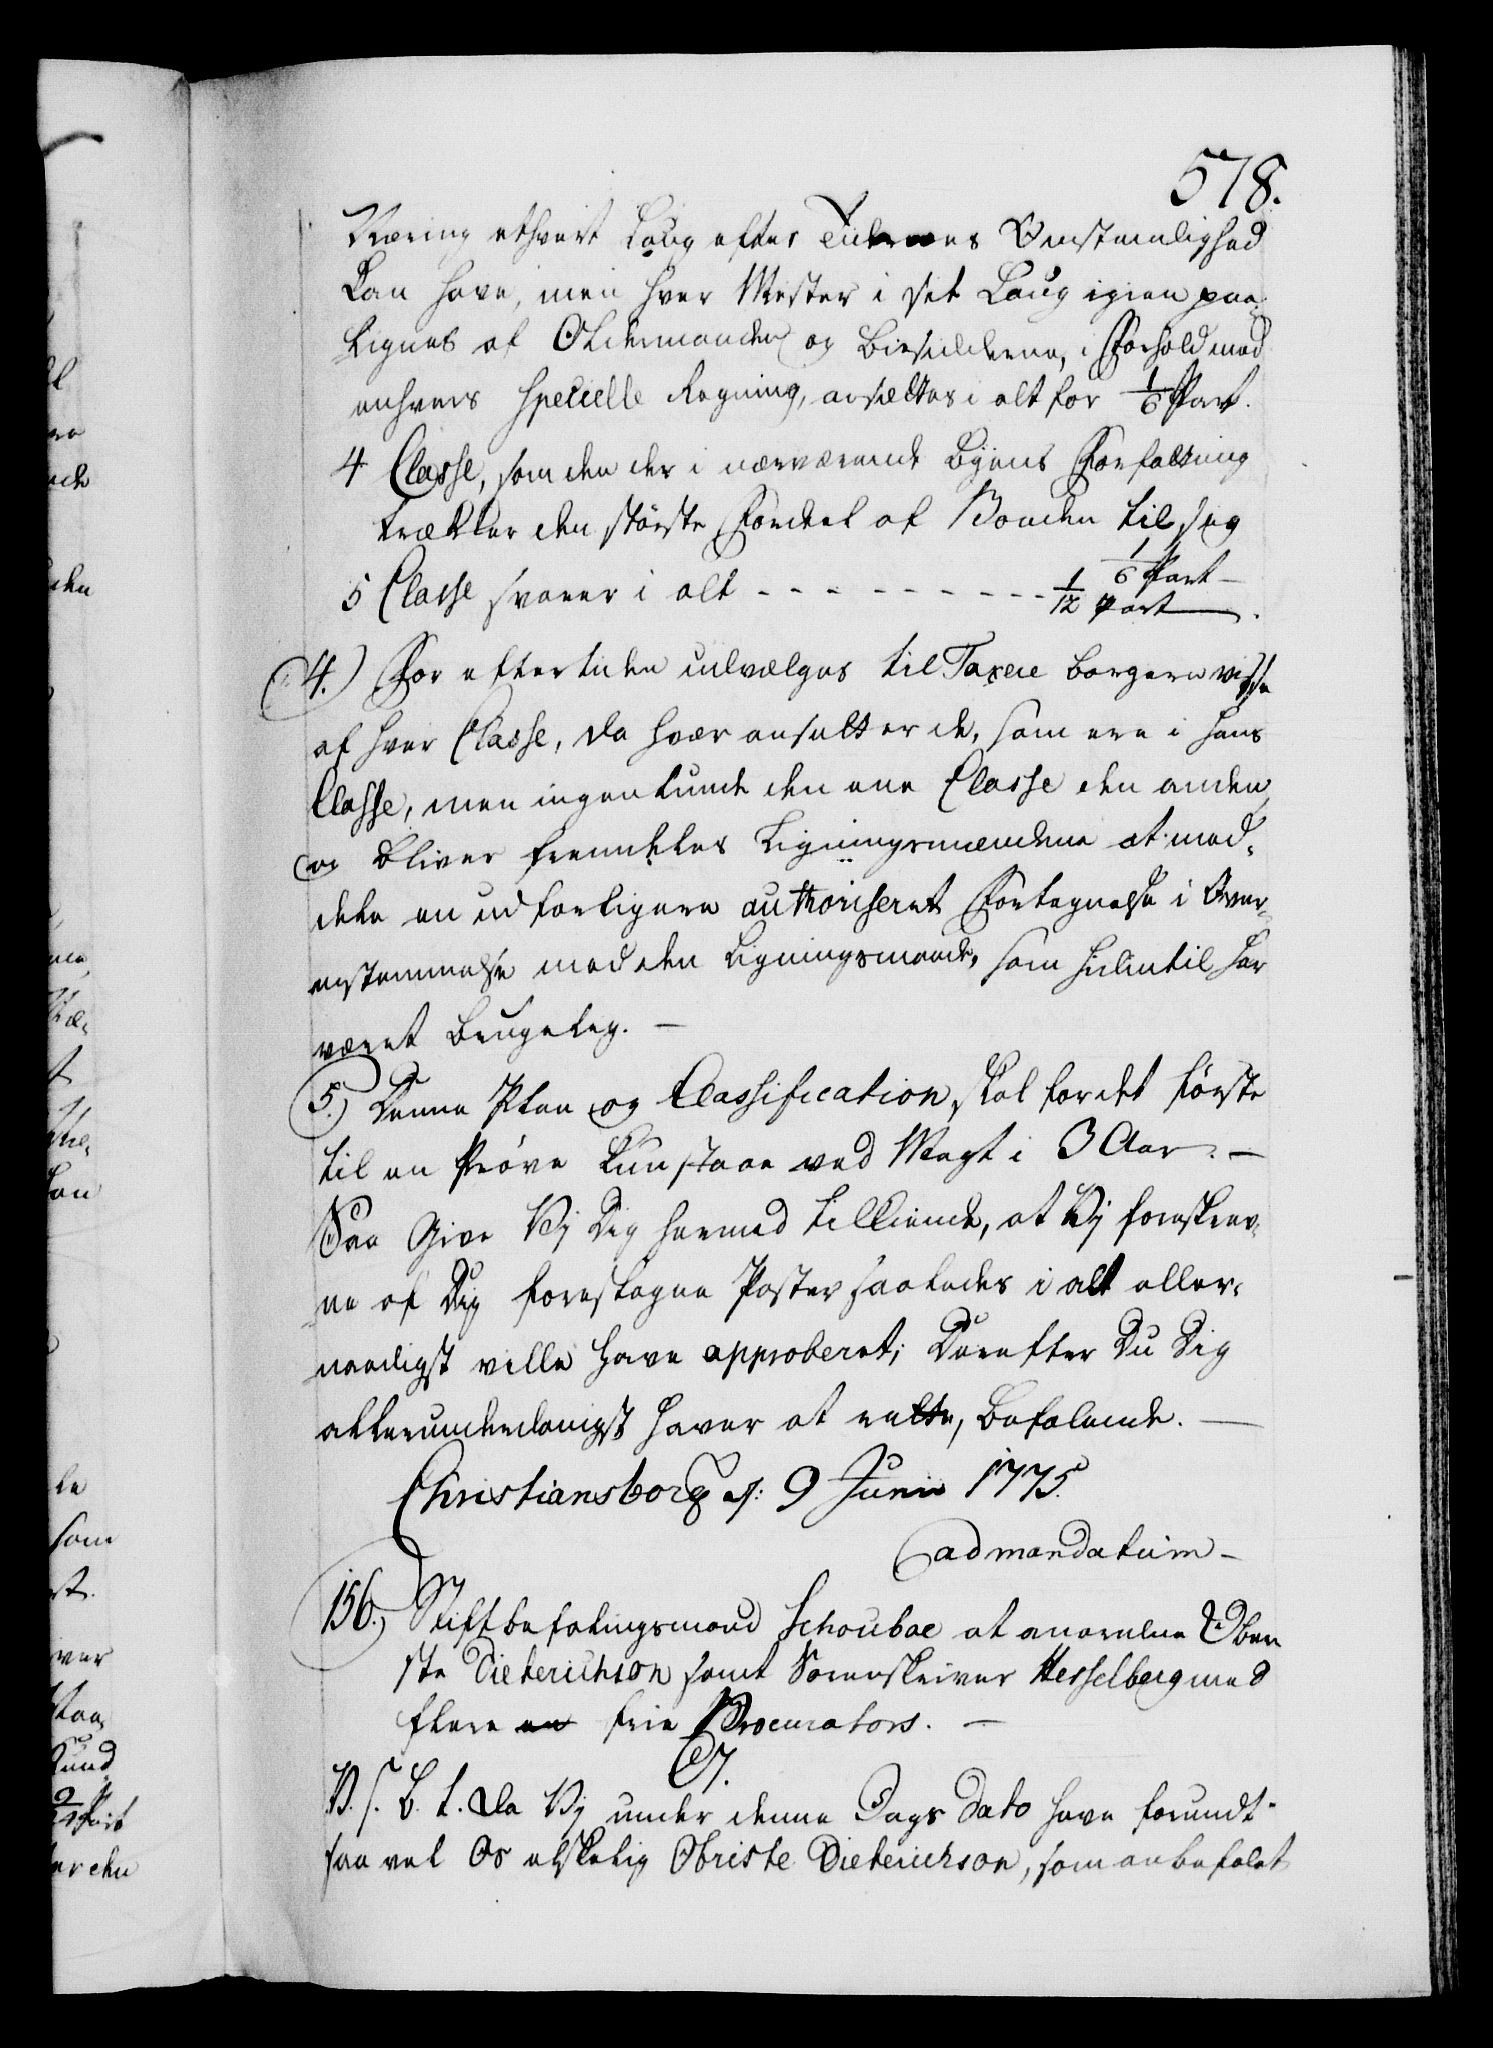 578.
Næring ethvert Laug efter Tidernes Omstændighed
kan have, men hver Mester i sit Laug igien paa¬
lignes af Oldermanden og Bisidderne, i Forhold med
enhvers specielle Regning, ansættes i alt for 1/6 Part.
4 Classe, som den der i nærværende Byens Forfatning
trækker den störste Fordeel af Bonden til sig
1/6 Part —
5 Classe svarer i alt - - - - - - - - - - 1/12 Part —.
4.) For eftertiden udvælges til Taxere borgere visse
af hver Classe, da hver ansætter de, som ere i hans
Classe, men ingenlunde den ene Classe den anden,
og bliver fremdeles Ligningsmændene at med¬
dele en udførligere authoriseret Fortegnelse i Over¬
eensstemmelse med den Ligningsmaade, som hidindtil har
været brugelig. —
5.) Denne Plan og Classification skal for det første
til en Pröve kun staae ved Magt i 3 Aar. —
Saa Give Vj Dig hermed tilkiende, at Vj foreskrev¬
ne af Dig foreslagne Poster saaledes i alt aller¬
naadigst ville have approberet; Derefter Du Dig
allerunderdanigst haver at rette, Befalende. —
Christiansborg d: 9 Junii 1775.
ad mandatum —
156.) Stiftbefalingsmand Schouboe at anordne Ober
ste Dieterichson samt Sorenskriver Hesselberg med
flere en frie Procurators. —
C7.
V. S. B. t. Da Vj under denne Dags Dato have forundt
saa vel Os elskelig Obriste Dieterichson, som anbefalet